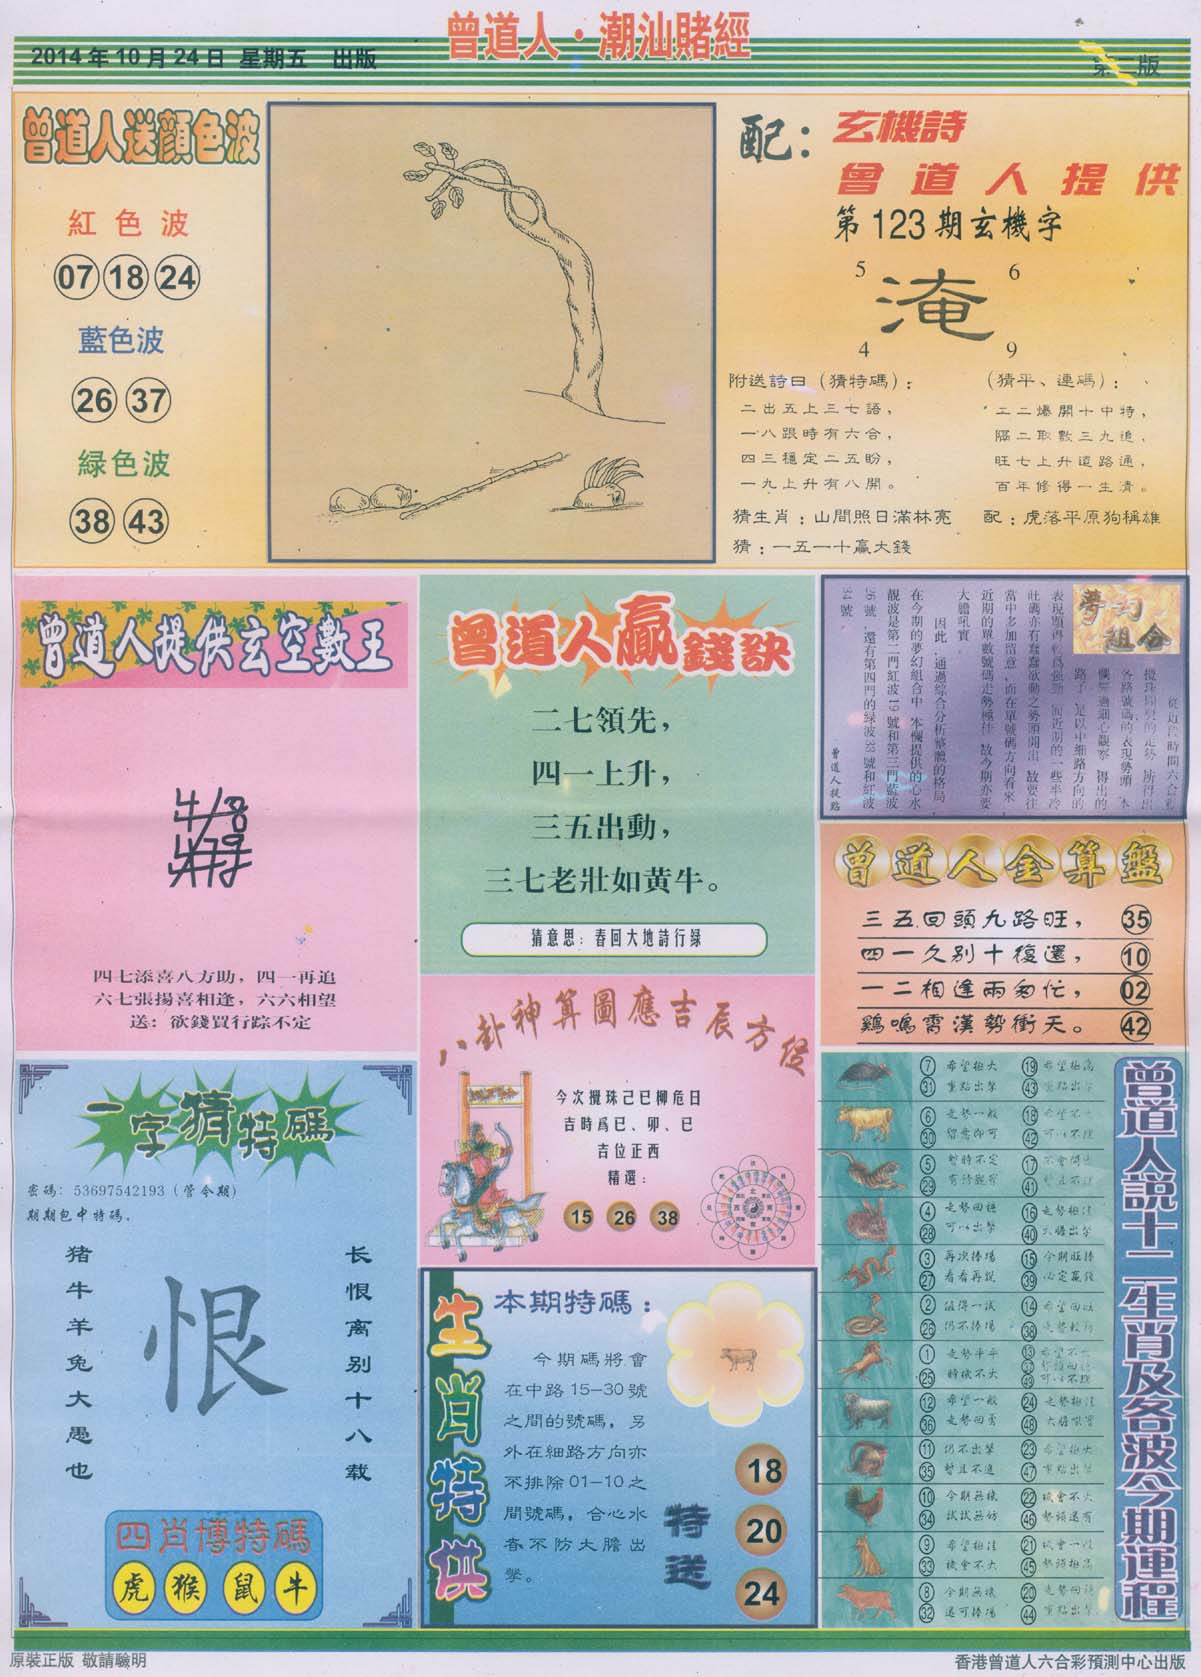 曾道人·潮汕賭經
2014年10月24日 星期五 出版
第二版
曾道人送顔色波
紅色波
07 18 24
藍色波
26 37
緑色波
38 43
配：
玄機詩
曾道人提供
第123期玄機字
5 6
淹
4 9
附送詩曰（猜特碼）：
二出五上三七語，
一八跟時有六合，
四三穩定二五盼，
一九上升有八開。
（猜平、連碼）：
二二爆開十中特，
隔二取數三九追，
旺七上升這路通，
百年修得一生清。
猜生肖：山間照日滿林亮
配：虎落平原狗稱雄
猜：一五一十贏大錢
曾道人提供玄空數王
四七添喜八方助，四一再追
六七張揚喜相逢，六六相望
送：欲錢買行踪不定
曾道人贏錢訣
二七領先，
四一上升，
三五出動，
三七老壯如黄牛。
猜意思：春回大地詩行録
夢幻組合
從近段時間六合彩
攪珠開獎的走勢，所得出
各路號碼的表現勢頭，本
欄經過細心觀察，得出的
路子，是以中細路方向的
表現顯得較爲強勁，而近期的一些半冷
旺碼亦有蠢蠢欲動之勢頭開出，故要往
當中多加留意，而在單號碼方向看來，
近期的單數號碼走勢極佳，故今期亦要
大膽吼實。
因此，通過綜合分析整體的格局，
在今期的夢幻組合中，本欄提供的心水
靚波是第二門紅波19號和第三門藍波
26號，還有第四門的緑波38號和紅波
34號。
曾道人提點
曾道人金算盤
三五回頭九路旺， 35
四一久别十復還， 10
一二相逢兩匆忙， 02
鷄鳴霄漢勢衝天。 42
八卦神算圖應吉辰方位
今次攪珠己巳柳危日
吉時爲已、卯、巳
吉位正西
精選：
15 26 38
一字猜特碼
密碼：53697542193（管今期）
期期包中特碼。
猪牛羊兔大愚也
恨
长恨离别十八载
四肖博特碼
虎 猴 鼠 牛
生肖特供
本期特碼：
今期碼將會
在中路15－30號
之間的號碼，另
外在細路方向亦
不排除01－10之
間號碼，合心水
者不防大膽出
擊。
特送
18
20
24
曾道人説十二生肖及各波今期運程
7 希望極大 19 希望極高
31 重點出擊 43 重點出擊
6 走勢一般 18 希望不大
30 留意即可 42 可以不理
5 暫時不定 17 不會開出
29 有待觀察 41 暫且不理
4 走勢回穩 16 走勢極佳
28 可以出擊 40 大膽出擊
3 再次捧場 15 今期旺捧
27 看看再説 39 必定贏錢
2 值得一試 14 希望回旺
26 仍不捧場 38 走勢較好
1 走勢平平 13 希望不大
25 時機不大 37 勢頭回穩
49 可以不理
12 希望一般 24 走勢極佳
36 走勢回勇 48 大膽吼實
11 仍不出擊 23 希望極大
35 暫且不追 47 重點出擊
10 今期無機 22 機會不大
34 試試無妨 46 勢頭還有
9 希望極佳 21 機會一般
33 機會不大 45 勢頭極高
8 今期無機 20 走勢回穩
32 還可捧場 44 重點出擊
原裝正版 敬請驗明
香港曾道人六合彩預測中心出版